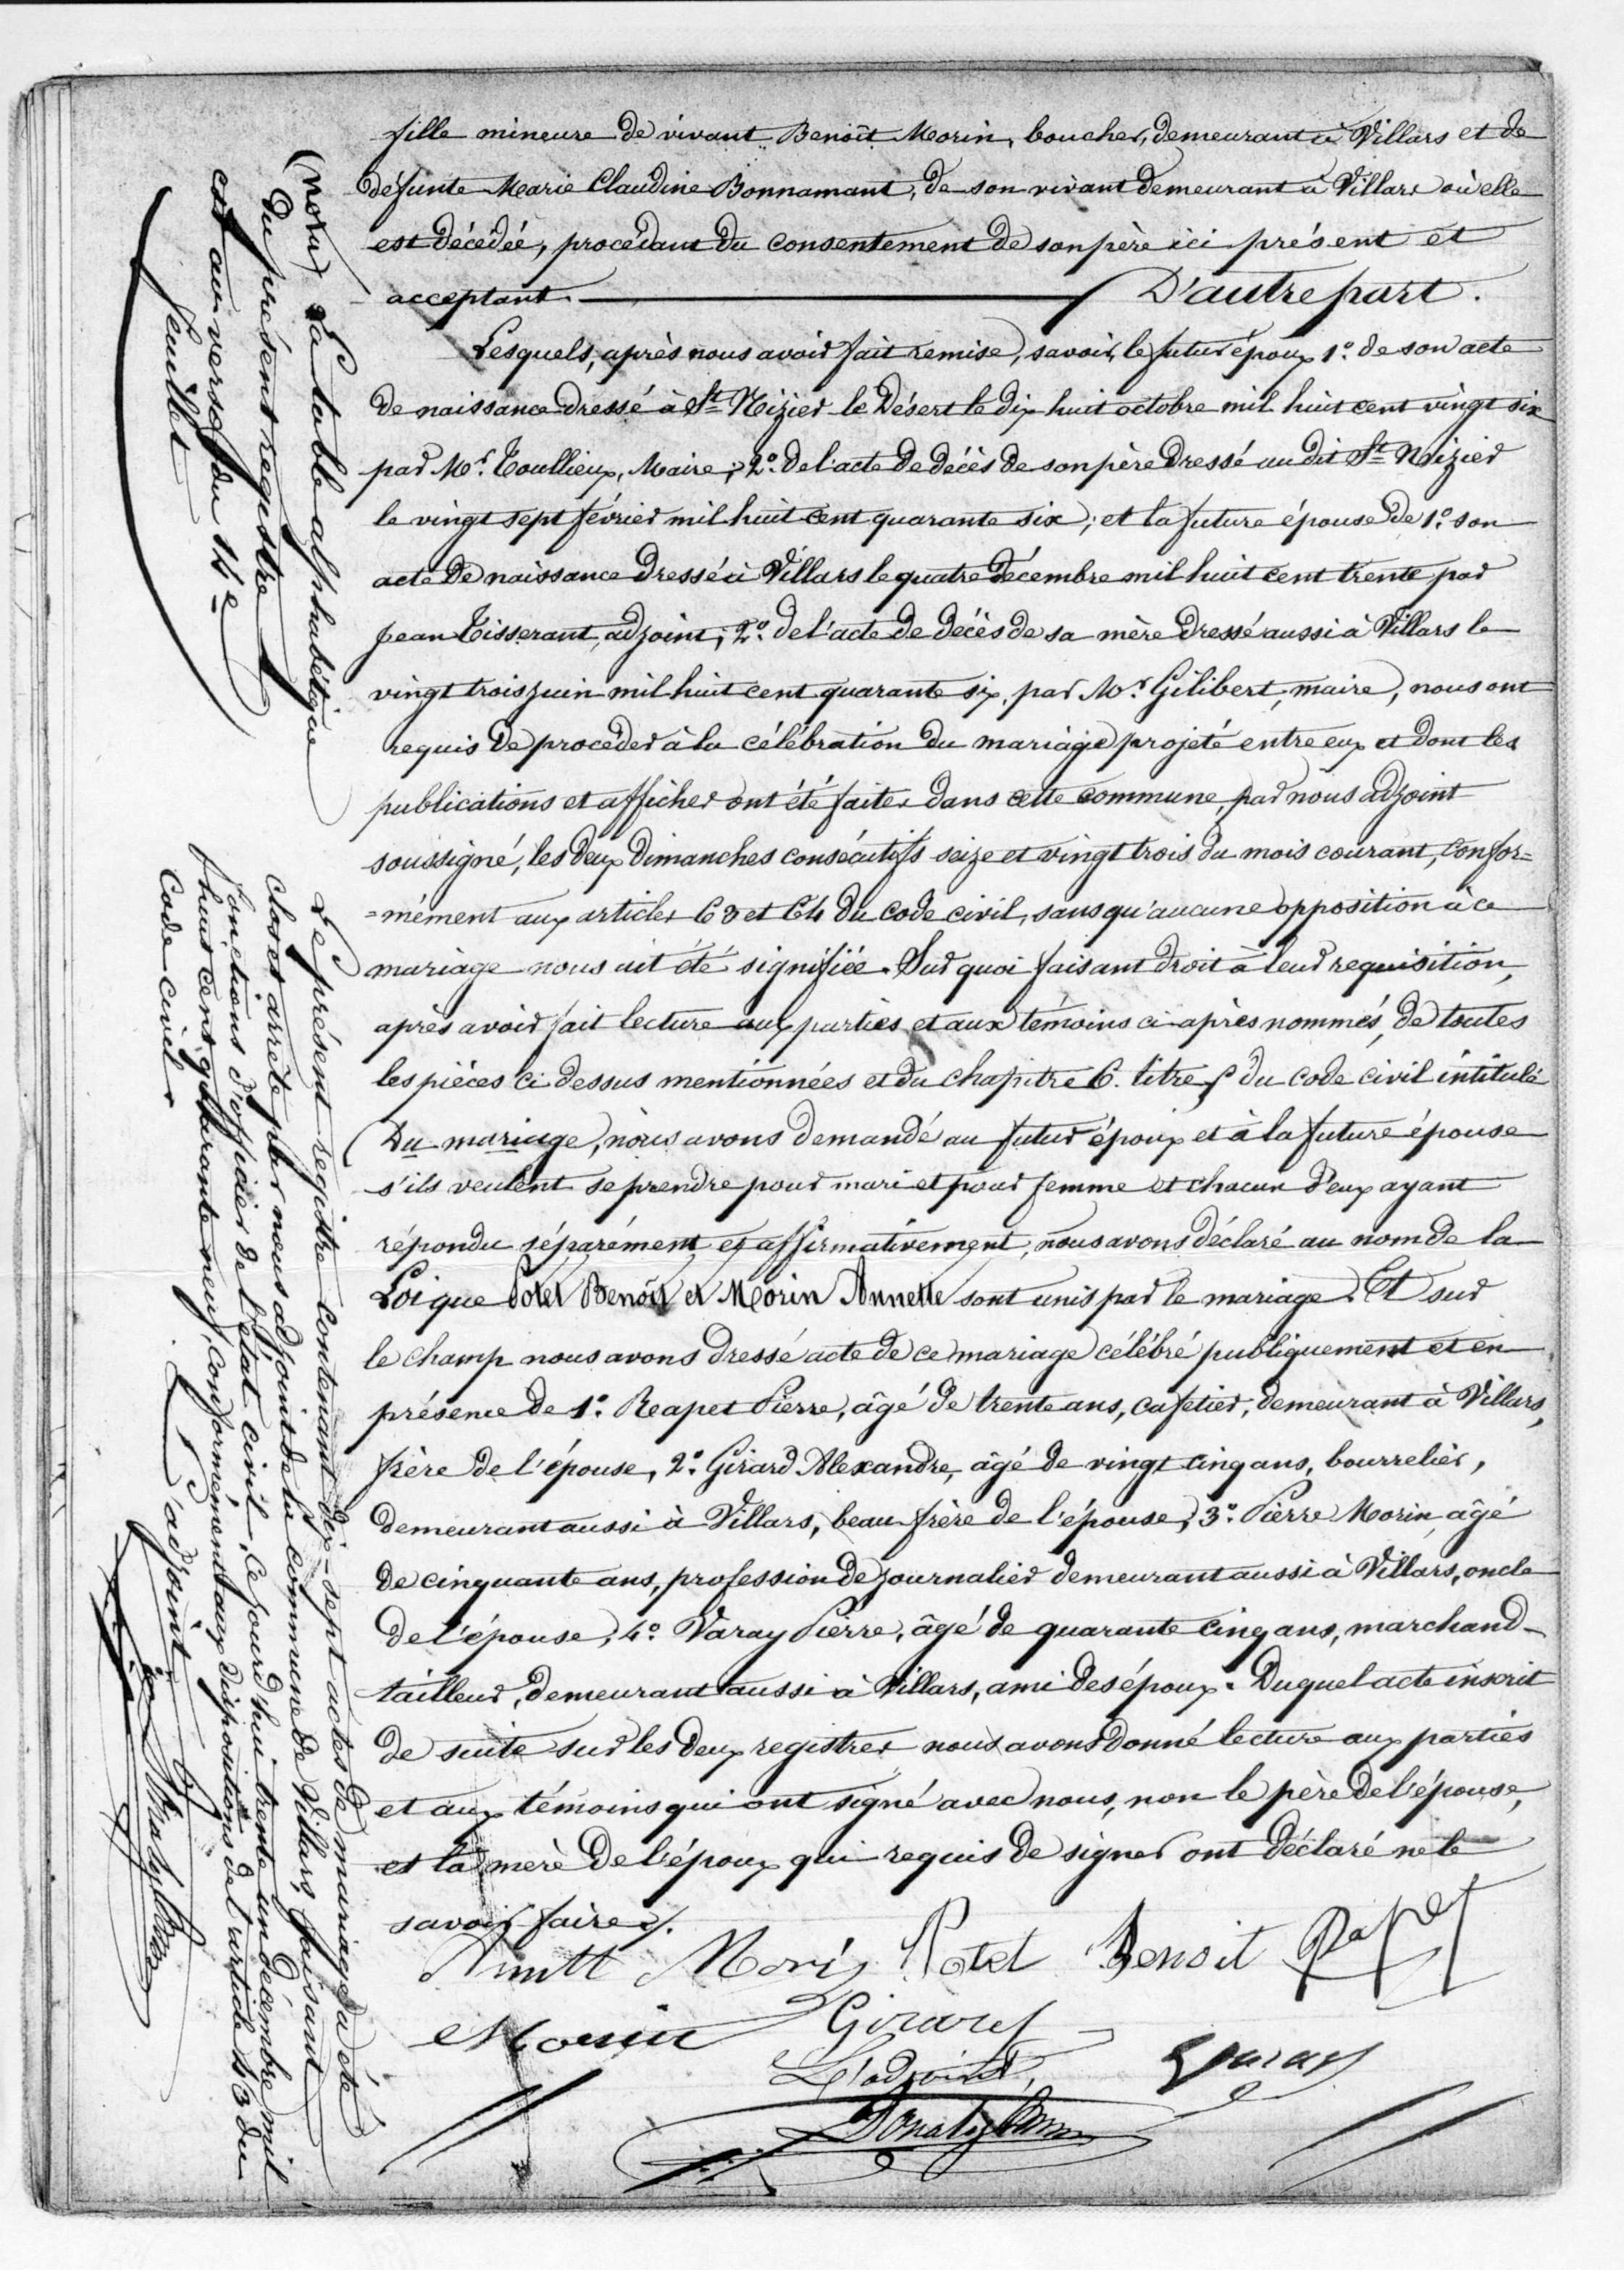 fille mineure de vivant Benoît Morin, boucher, demeurant à Villars et de
défunte Marie Claudine Bonnamant, de son vivant demeurant à Villars où elle
est décédée, procédant du consentement de son père ici présent et
acceptant. D'autre part.
Lesquels, après nous avoir fait remise, savoir, le futur époux 1º. de son acte
de naissance dressé à St. Nizier le Désert le dix huit octobre mil huit cent vingt six
par Mr. Toullieux, Maire; 2º. de l'acte de décès de son père dressé au dit St. Nizier
le vingt sept février mil huit cent quarante six; et la future épouse de 1º. son
acte de naissance dressé à Villars le quatre décembre mil huit cent trente par
Jean Tisserant, adjoint; 2º. de l'acte de décès de sa mère dressé aussi à Villars le
vingt trois juin mil huit cent quarante six, par Mr. Gilibert, maire, nous ont
requis de procéder à la célébration du mariage projeté entre eux et dont les
publications et affiches ont été faites dans cette commune, par nous adjoint
soussigné, les deux dimanches consécutifs seize et vingt trois du mois courant, confor=
=mément aux articles 63 et 64 du code civil, sans qu'aucune opposition à ce
mariage nous ait été signifiée. Sur quoi faisant droit à leur requisition,
après avoir fait lecture aux parties et aux témoins ci-après nommés, de toutes
les pièces ci-dessus mentionnées et du chapitre 6. titre 5 du code civil intitulé
Du mariage, nous avons demandé au futur époux et à la future épouse
s'ils veulent se prendre pour mari et pour femme et chacun d'eux ayant
répondu séparément et affirmativement, nous avons déclaré au nom de la
Loi que Potel Benoit et Morin Annette sont unis par le mariage. Et sur
le champ nous avons dressé acte de ce mariage célébré publiquement et en
présence de 1º. Reapet Pierre, âgé de trente ans, cafetier, demeurant à Villars,
frère de l'épouse, 2º. Girard Alexandre, âgé de vingt cinq ans, bourrelier,
demeurant aussi à Villars, beau frère de l'épouse, 3º. Pierre Morin, âgé
de cinquante ans, profession de journalier demeurant aussi à Villars, oncle
de l'épouse, 4º. Varay Pierre, âgé de quarante cinq ans, marchand-
tailleur, demeurant aussi à Villars, ami des époux. Duquel acte inscrit
de suite sur les deux registres nous avons donné lecture aux parties
et aux témoins qui ont signé avec nous, non le père de l'épouse,
et la mère de l'époux qui requis de signer ont déclaré ne le
savoir faire.
Morin Potet Benoit Rapet
Morin Girard Varay
L'adjoint,
(Nota) La table alphabétique
du présent registre
est au verso du 14e
feuillet
Le présent registre contenant dix-sept actes de mariage a été
clos et arrêté par nous adjoint de la commune de Villars, faisant
fonctions d'officier de l'état civil, ce jourd'hui trente un décembre mil
huit cent quarante neuf, conformément aux dispositions de l'article 43 du
Code civil.
L'adjoint